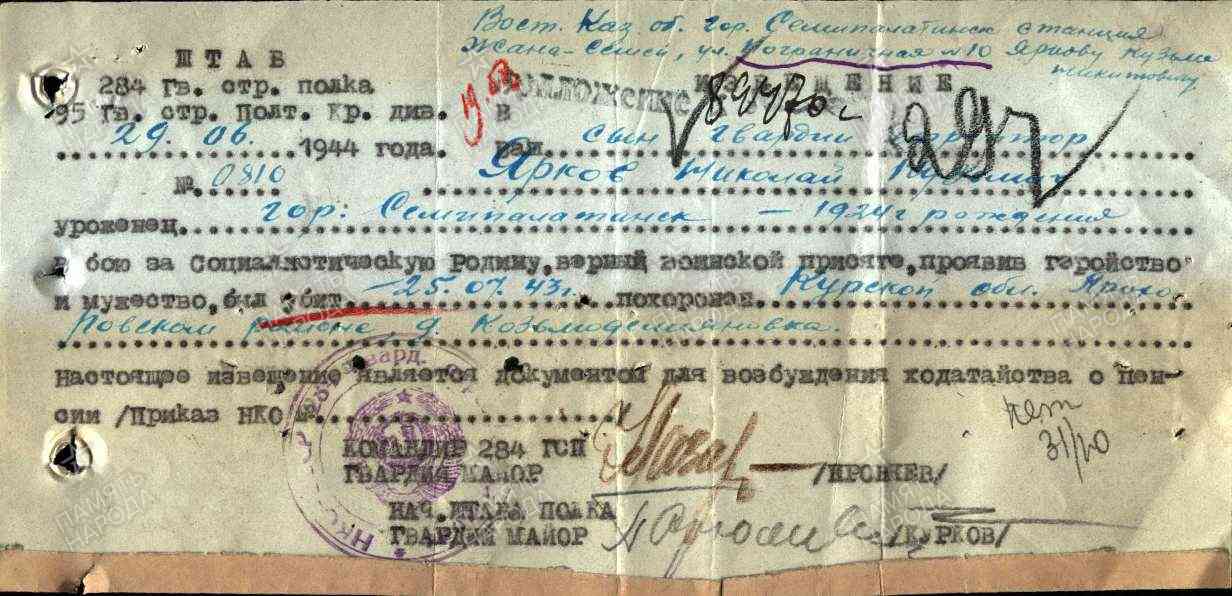 Вост. Каз. об. гор. Семипалатинск станция
Жана-Семей, ул. Пограничная №10 Яркову Кузьме
Никитовичу
ШТАБ
284 Гв. стр. полка
ИЗВЕЩЕНИЕ
95 Гв. стр. Полт. Кр. див. В
29. 06. 1944 года. Ваш сын гвардии
№ 0810 Ярков Николай
уроженец гор. Семипалатинск – 1924 г рождения
в бою за Социалистическую Родину, верный воинской присяге, проявив геройство
и мужество, был убит – 25.07.43 г. похоронен Курской обл. Прохо
ровском районе, д. Козьмодемьяновка.
настоящее извещение является документом для возбуждения ходатайства о пен-
сии /Приказ НКО №
нет
31/10
КОМАНДИР 284 ГСП
ГВАРДИИ МАЙОР
НАЧ. ШТАБА ПОЛКА
ГВАРДИИ МАЙОР /КУРКОВ/
ПАМЯТЬ НАРОДА